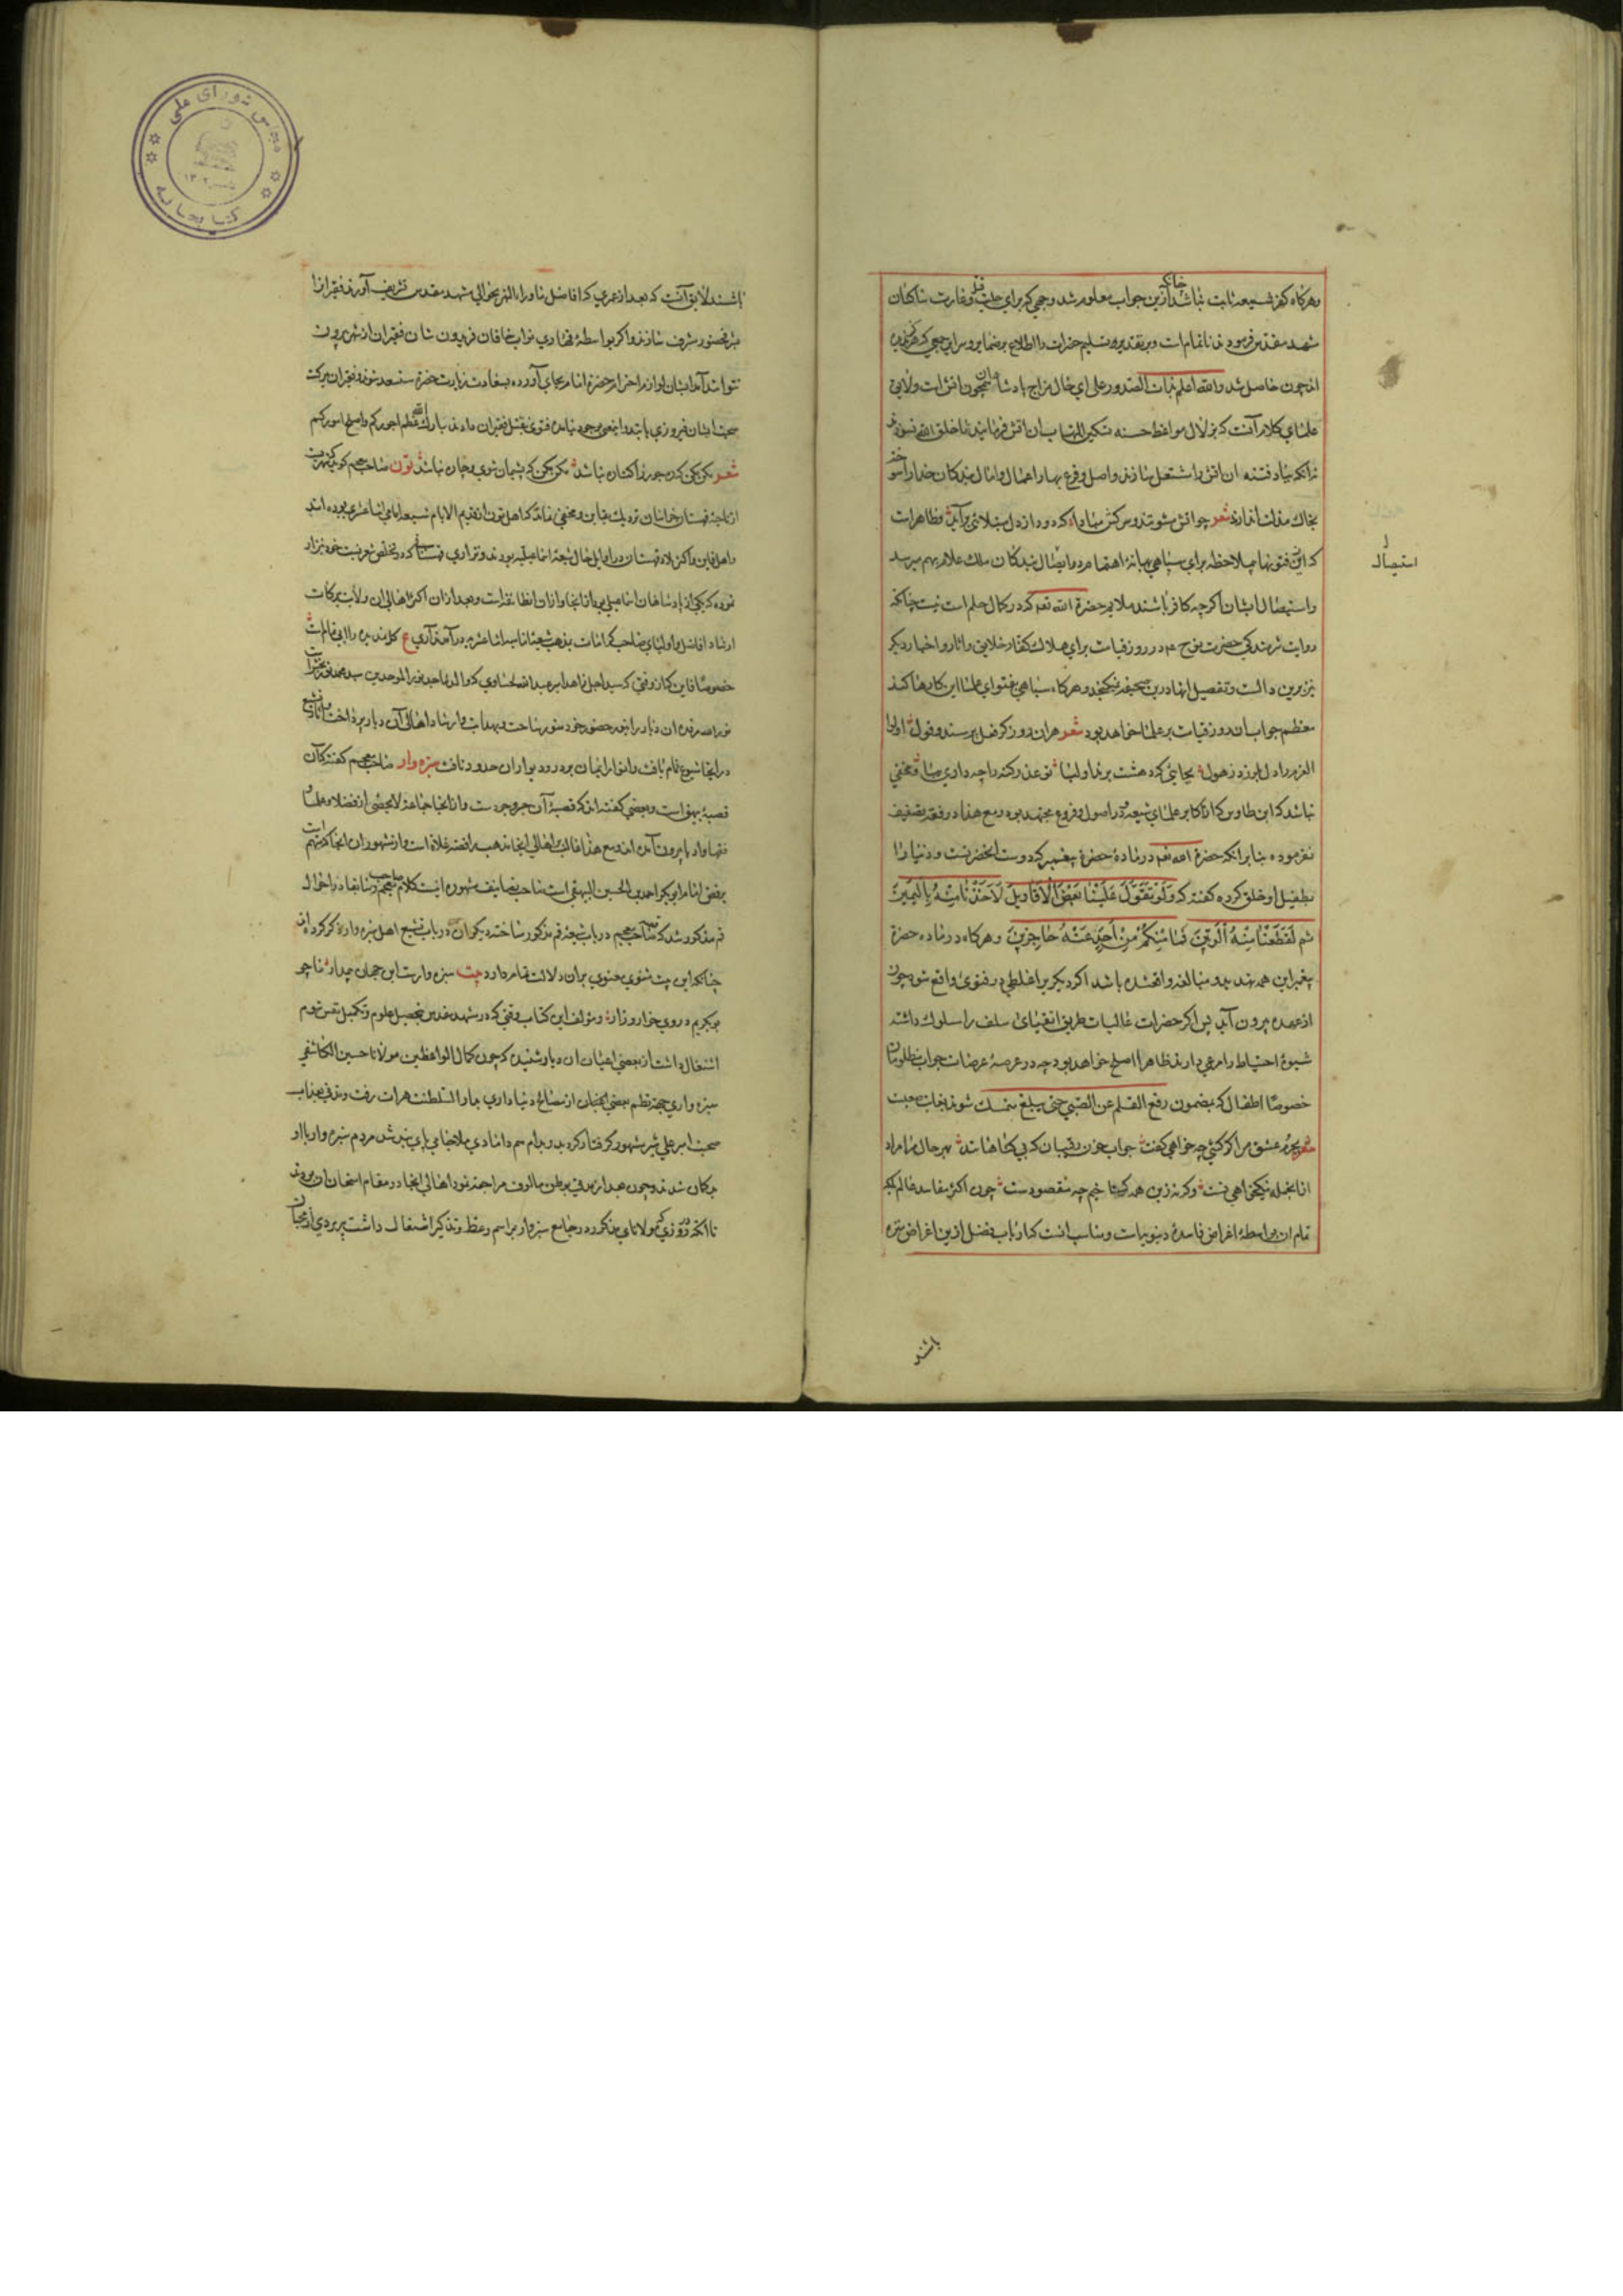 وهرکاه کفر شیعه ثابت نباشد چنانکه ازین جواب معلوم شد وجهی که برای حلیت قتل وغارت ساکنان
شهد مقدس فرموده‌اند ناتمام است وبر تقدیر تسلیم حضرات را اطلاع بر ضمایر
چون حاصل شد والله اعلم بذات الصدور علی ای حال مزاج پادشاهان همچون آتش است ولایق
علمای کلام آنست که بزلال مواعظ حسنه تسکین التهاب ان آتش فرمایند تا خلق الله نسوزند
نه آنکه بباد فتنه ان آتش را مشتعل سازند واصل وفرع بهار اعمال وامال بندکان خدا را سوخته
بخاک مذلت اندازند شعر چو آتش مشو تند وسرکش مباد که دود از دل مبتلائی برآید وظاهرات
که این فتویها بملاحظه برای سپاهی بهانه اهتمام در استیصال بندکان ملک علام بهم میرسد
واستیصال ایشان اکرچه کافر باشند ملایم حضرة الله تعالی که در کمال حلم است نیست چنانکه
روایت شرمندکی حضرت نوح ع م در روز قیامت برای هلاک کفار خلایق واثار واخبار دیکر
نیز برین دالست وتفصیل انها درین صحیفه نمیکنجد وهرکاه سپاهی بفتوای علما این کارها کند
معظم جواب ان روز قیامت بر علما خواهد بود شعر هران روز کز فعل پرسند وقول اولوا
العزم را دل بلرزد ز هول بجایی که دهشت برند اولیا تو عذر کنه را چه داری بیا ومخفی
نباشد که ابن طاوس که از اکابر علمای شیعه در اصول وفروع مجتهد بوده ومع هذا در فقه تصنیف
نفرموده بنابر انکه حضرة الله تعالی در ماده حضرة پیغمبر که دوست انحضرتست ودنیا را
بطفیل او خلق کرده کفته که وَلَوْ تَقَوَّلَ عَلَيْنَا بَعْضَ الْأَقَاوِيلِ لَأَخَذْنَا مِنْهُ بِالْيَمِينِ
ثم لَقَطَعْنَا مِنْهُ الْوَتِينَ فَمَا مِنْكُمْ مِنْ أَحَدٍ عَنْهُ حَاجِزِينَ وهرکاه در ماده حضرة
پیغمبر این همه تهدید ومبالغه واقع شده باشد اکر دیکریرا غلطی در فتوی واقع شود چون
از عهده بیرون آید پس اکر حضرات عالیات طریق اتقیای سلف را سلوک داشته
شیوه احتیاط را مرعی دارند ظاهرا اصلح خواهد بود چه در عرصه عرصات جواب مظلومان
خصوصا اطفال که بمضمون رفع القلم عن الصبی حتی یبلغ متمسک شوند بغایت صعبست
شعر بجرم عشق مرا کر کشی چه خواهی کفت جواب خون رقیبان که بی کناهانند بهر حال مرا مراد
نیکخواهی تست وکرنه زین همه کفتنم چه مقصودست چون اکثر مفاسد عالم بلکه
تمام ان بواسطه اغراض فاسده دنیویات ومناسب انست که ارباب فضل ازین اغراض مبرا
استیصال
باشند
باشند لایق آنست که بعد از عمری که افاضل ماوراء النهر بحوالی مشهد مقدس تشریف آورند فقیرانرا
بحضور مشرف سازند واکر بواسطه نواب خاقان فریدون شان فقیران از شهر بیرون
نتوانند آمد ایشان لوازم احترام حضرة امام بجای آورده بسعادت زیارت حضرة مستسعد شوند وفقیران ببرکت
صحبت ایشان فیروزی یابند
شعر مکن مکن که جور را کناره نباشد مکن مکن که پشیمان شوی وچاره نباشد تون صاحب معجم کوید که شهریست
از ناحیه قهستان خراسان نزدیک بقاین ومخفی نماند که اهل تون از قدیم الایام شیعه امامی اثناعشری بوده‌اند
واهل قاین واکثر بلاد قهستان در اوایل حال شیعه اسماعیلیه بودند ونزاری قهستانی که در تخلص شعر نسبت خود بنزار
نموده که یکی از پادشاهان اسماعیلی بود از انجا وازان طایفه است وبعد ازان اکثر اهالی ان ولایت ببرکات
ارشاد افاضل واولیای صاحب کرامات بمذهب شیعه امامیه اثناعشریه درآمدند آری ع
خصوصا قاین که از وقتی که سید اجل زاهد امیر عبدالله لحساوی که والد ماجد فخر الموحدین سید محمد نوربخش است
نور الله مرقده ان دیار را بنور حضور خود منور ساخت وبهدایت وارشاد اهالی آن دیار پرداخت
در انجا شیوع تمام یافت وانوار ایمان بر در ودیوار ان حدود تافت سبزه وار صاحب معجم کفته که آن
قصبه بیهق است وبعضی کفته‌اند که قصبه آن خسروجردست واز انجا جماعة لایحصی از فضلا وعلما
فقها وادبا بیرون آمده‌اند ومع هذا غالب بر اهالی انجا مذهب رافضه غلاة است واز مشهوران انجا که متهم
برفض امام ابوبکر احمد بن الحسین البیهقی است صاحب تصانیف مشهوره اینست کلام صاحب معجم وسابقا در احوال
قم مذکور شد که صاحب معجم در باب شیعه قم مذکور ساخته دیکران در باب تشیع اهل سبزه وار ذکر کرده‌اند
چنانکه این بیت مثنوی معنوی بران دلالت تمام دارد بیت سبزه وارست این جهان بیمدار ما چو
بوبکریم در وی خوار وزار ومؤلف این کتاب وقتی که در مشهد مقدس بتحصیل علوم وتکمیل نفس شوم
اشتغال داشت از بعضی اعیان ان دیار شنید که چون کمال الواعظین مولانا حسین الکاشفی
سبزه واری بجهة نظم بعضی از مصالح دنیاداری بدار السلطنه هرات رفت ومدتی بعذاب
صحبت امیر علی شیر مشهور کرفتار کردید وبدام هم دامادی ملا جامی پای بند شد مردم سبزه وار با او
بدکمان شدند وچون بعد از مدتی بوطن مالوف مراجعت نمود اهالی انجا در مقام امتحان او بودند
تا انکه روزی که مولانای مذکور در جامع سبزه وار براسم وعظ وتذکیر اشتغال داشت پیرمردی از محبان
مجلس شورای ملی
کتابخانه